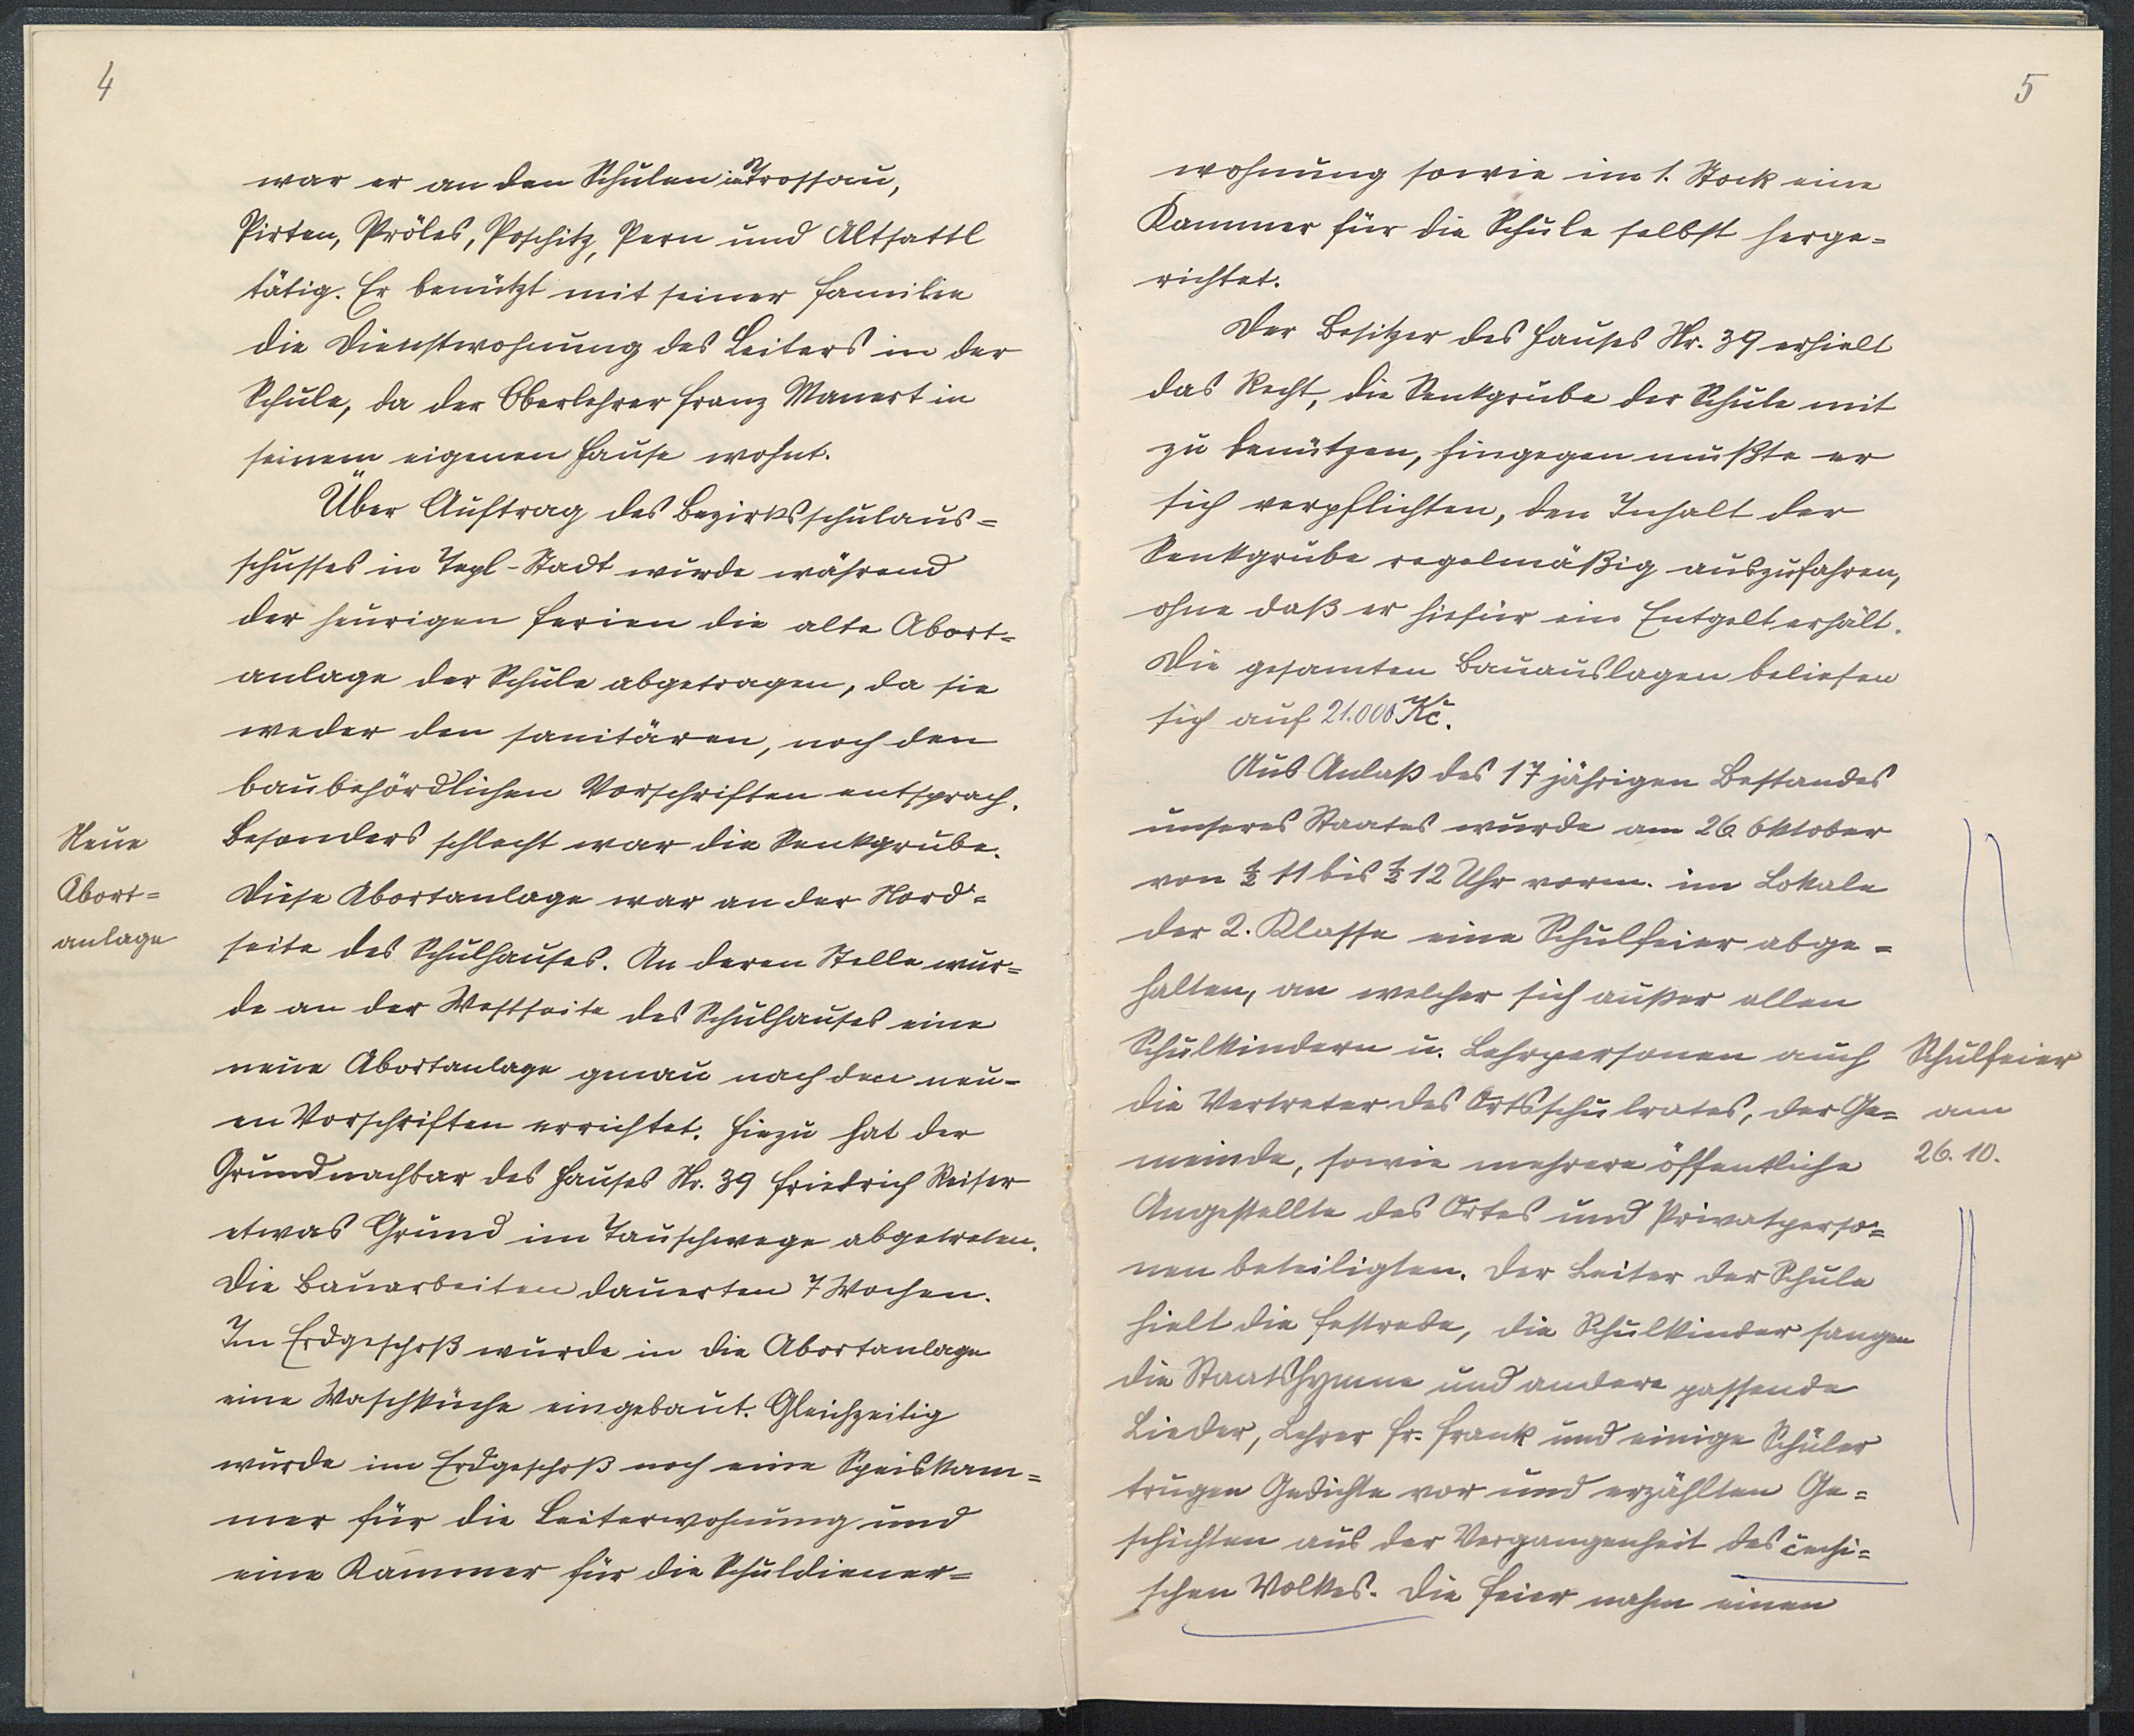 4
war er an den Schulen in Trossau,
Pirten, Pröles, Poschitz, Pern und Altsattl
tätig. Er benützt mit seiner Familie
die Dienstwohnung des Leiters in der
Schule, da der Oberlehrer Franz Manert in
seinem eigenen Hause wohnt.
Über Auftrag des Bezirksschulaus=
schusses in Tepl-Stadt wurde während
der heurigen Ferien die alte Abort=
anlage der Schule abgetragen, da sie
weder den sanitären, noch den
baubehördlichen Vorschriften entsprach.
Besonders schlecht war die Senkgrube.
Neue
Abort=
anlage
Diese Abortanlage war an der Nord=
seite des Schulhauses. An deren Stelle wur=
de an der Westseite des Schulhauses eine
neue Abortanlage genau nach den neu=
en Vorschriften errichtet. Hiezu hat der
Grundnachbar des Hauses Nr. 39 Friedrich Reiser
etwas Grund im Tauschwege abgetreten.
Die Bauarbeiten dauerten 7 Wochen.
Im Erdgeschoß wurde in die Abortanlage
eine Waschküche eingebaut. Gleichzeitig
wurde im Erdgeschoß noch eine Speiskam=
mer für die Leiterwohnung und
eine Kammer für die Schuldiener=
5
wohnung sowie im 1. Stock eine
Kammer für die Schule selbst herge=
richtet.
Der Besitzer des Hauses Nr. 39 erhielt
das Recht, die Senkgrube der Schule mit
zu benützen, hingegen mußte er
sich verpflichten, den Inhalt der
Senkgrube regelmäßig auszufahren,
ohne daß er hiefür ein Entgelt erhält.
Die gesamten Bauauslagen beliefen
sich auf 21.000 Kč.
Aus Anlaß des 17 jährigen Bestandes
unseres Staates wurde am 26. Oktober
von ½ 11 bis ½ 12 Uhr vorm. im Lokale
der 2. Klasse eine Schulfeier abge=
halten, an welcher sich außer allen
Schulkindern u. Lehrpersonen auch
die Vertreter des Ortsschulrates, der Ge=
meinde, sowie mehrere öffentliche
Schulfeier
am
26. 10.
Angestellte des Ortes und Privatperso=
nen beteiligten. Der Leiter der Schule
hielt die Festrede, die Schulkinder sangen
die Staatshymne und andere passende
Lieder, Lehrer Fr. Frank und einige Schüler
trugen Gedichte vor und erzählten Ge=
schichten aus der Vergangenheit des čechi=
schen Volkes. Die Feier nahm einen